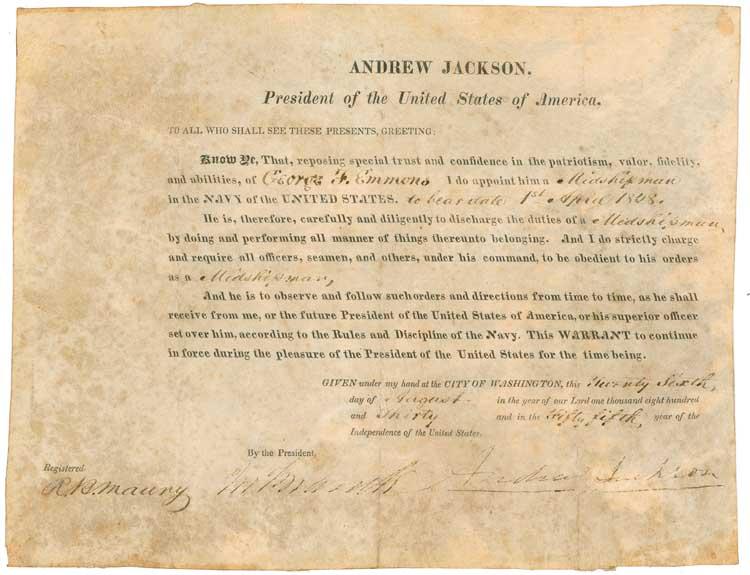 ANDREW JACKSON.
President of the United States of America.
TO ALL WHO SHALL SEE THESE PRESENTS, GREETING:
Know Ye, That, reposing special trust and confidence in the patriotism, valor, fidelity,
and abilities, of George F. Emmons I do appoint him a Midshipman
in the NAVY of the UNITED STATES. to bear date 1st April 1828.
He is, therefore, carefully and diligently to discharge the duties of a Midshipman,
by doing and performing all manner of things thereunto belonging. And I do strictly charge
and require all officers, seamen, and others, under his command, to be obedient to his orders
as a Midshipman,
And he is to observe and follow suchorders and directions from time to time, as he shall
receive from me, or the future President of the United States of America, or his superior officer
set over him, according to the Rules and Discipline of the Navy. This WARRANT to continue
in force during the pleasure of the President of the United States for the time being.
GIVEN under my hand at the CITY OF WASHINGTON, this Twenty Sixth,
day of August in the year of our Lord one thousand eight hundred
and Thirty and in the Fifty fifth, year of the
Independence of the United States.
By the President,
Registered
R.B. Maury Andrew Jackson